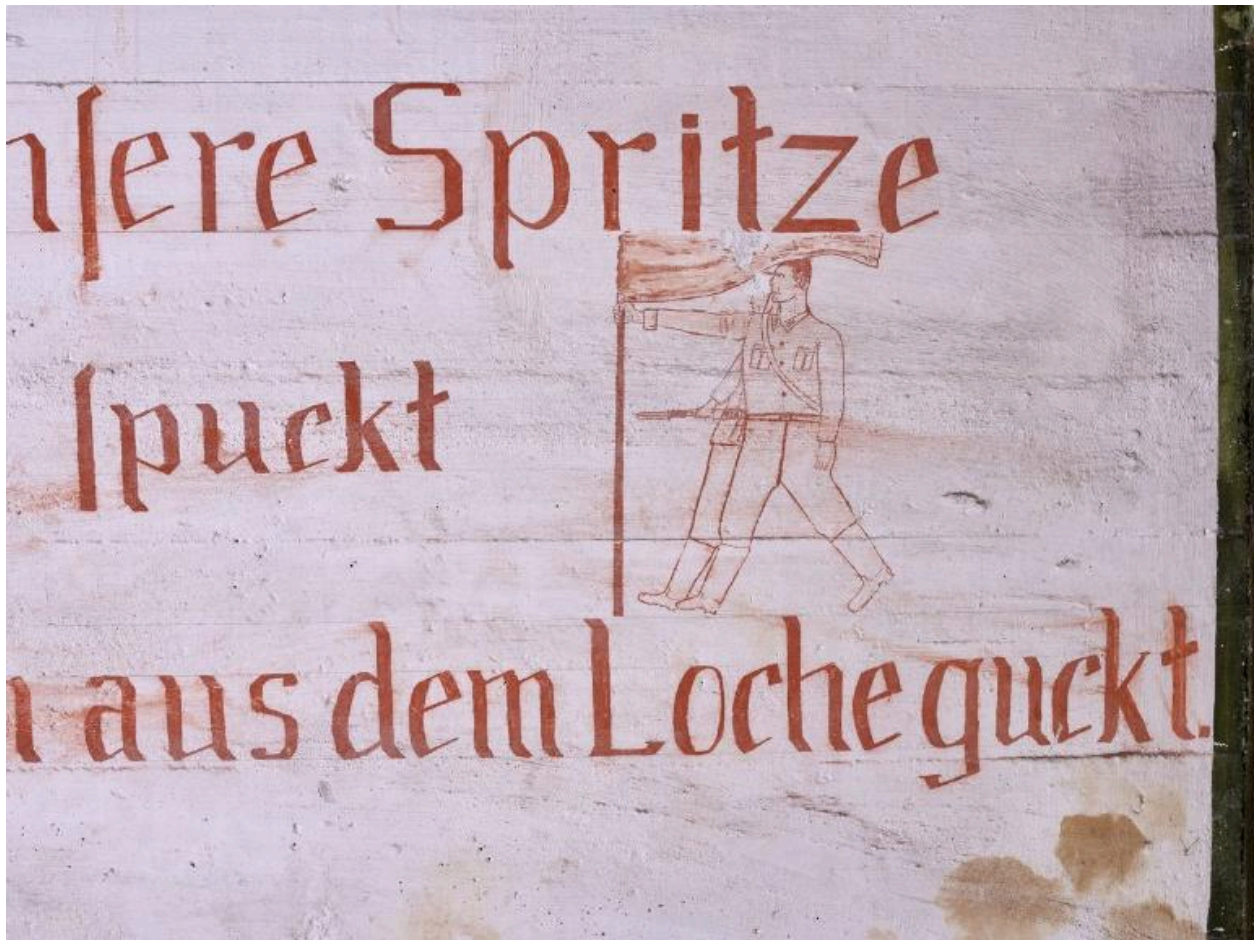 nſere Spritze
ſpuckt
n aus dem Loche guckt.